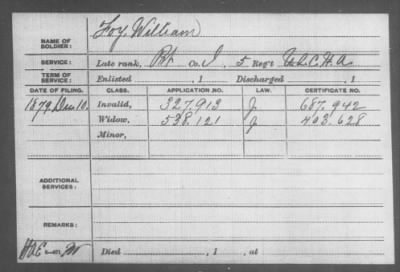 NAME OF SOLDIER: Foy, William
SERVICE: Late rank, Pvt Co. I, 5 Reg't U.S.C.H.A.
TERM OF SERVICE: Enlisted , 1 Discharged , 1
DATE OF FILING. CLASS. APPLICATION NO. LAW. CERTIFICATE NO.
1879, Dec 10. Invalid, 327.913 J. 687.942
Widow, 538.121 J 403.628
Minor,
ADDITIONAL SERVICES:
REMARKS:
Died , 1 , at